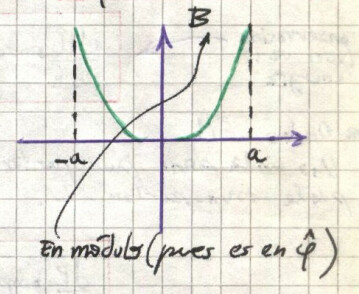 B
-a
a
En módulo (pues es en φ̂)